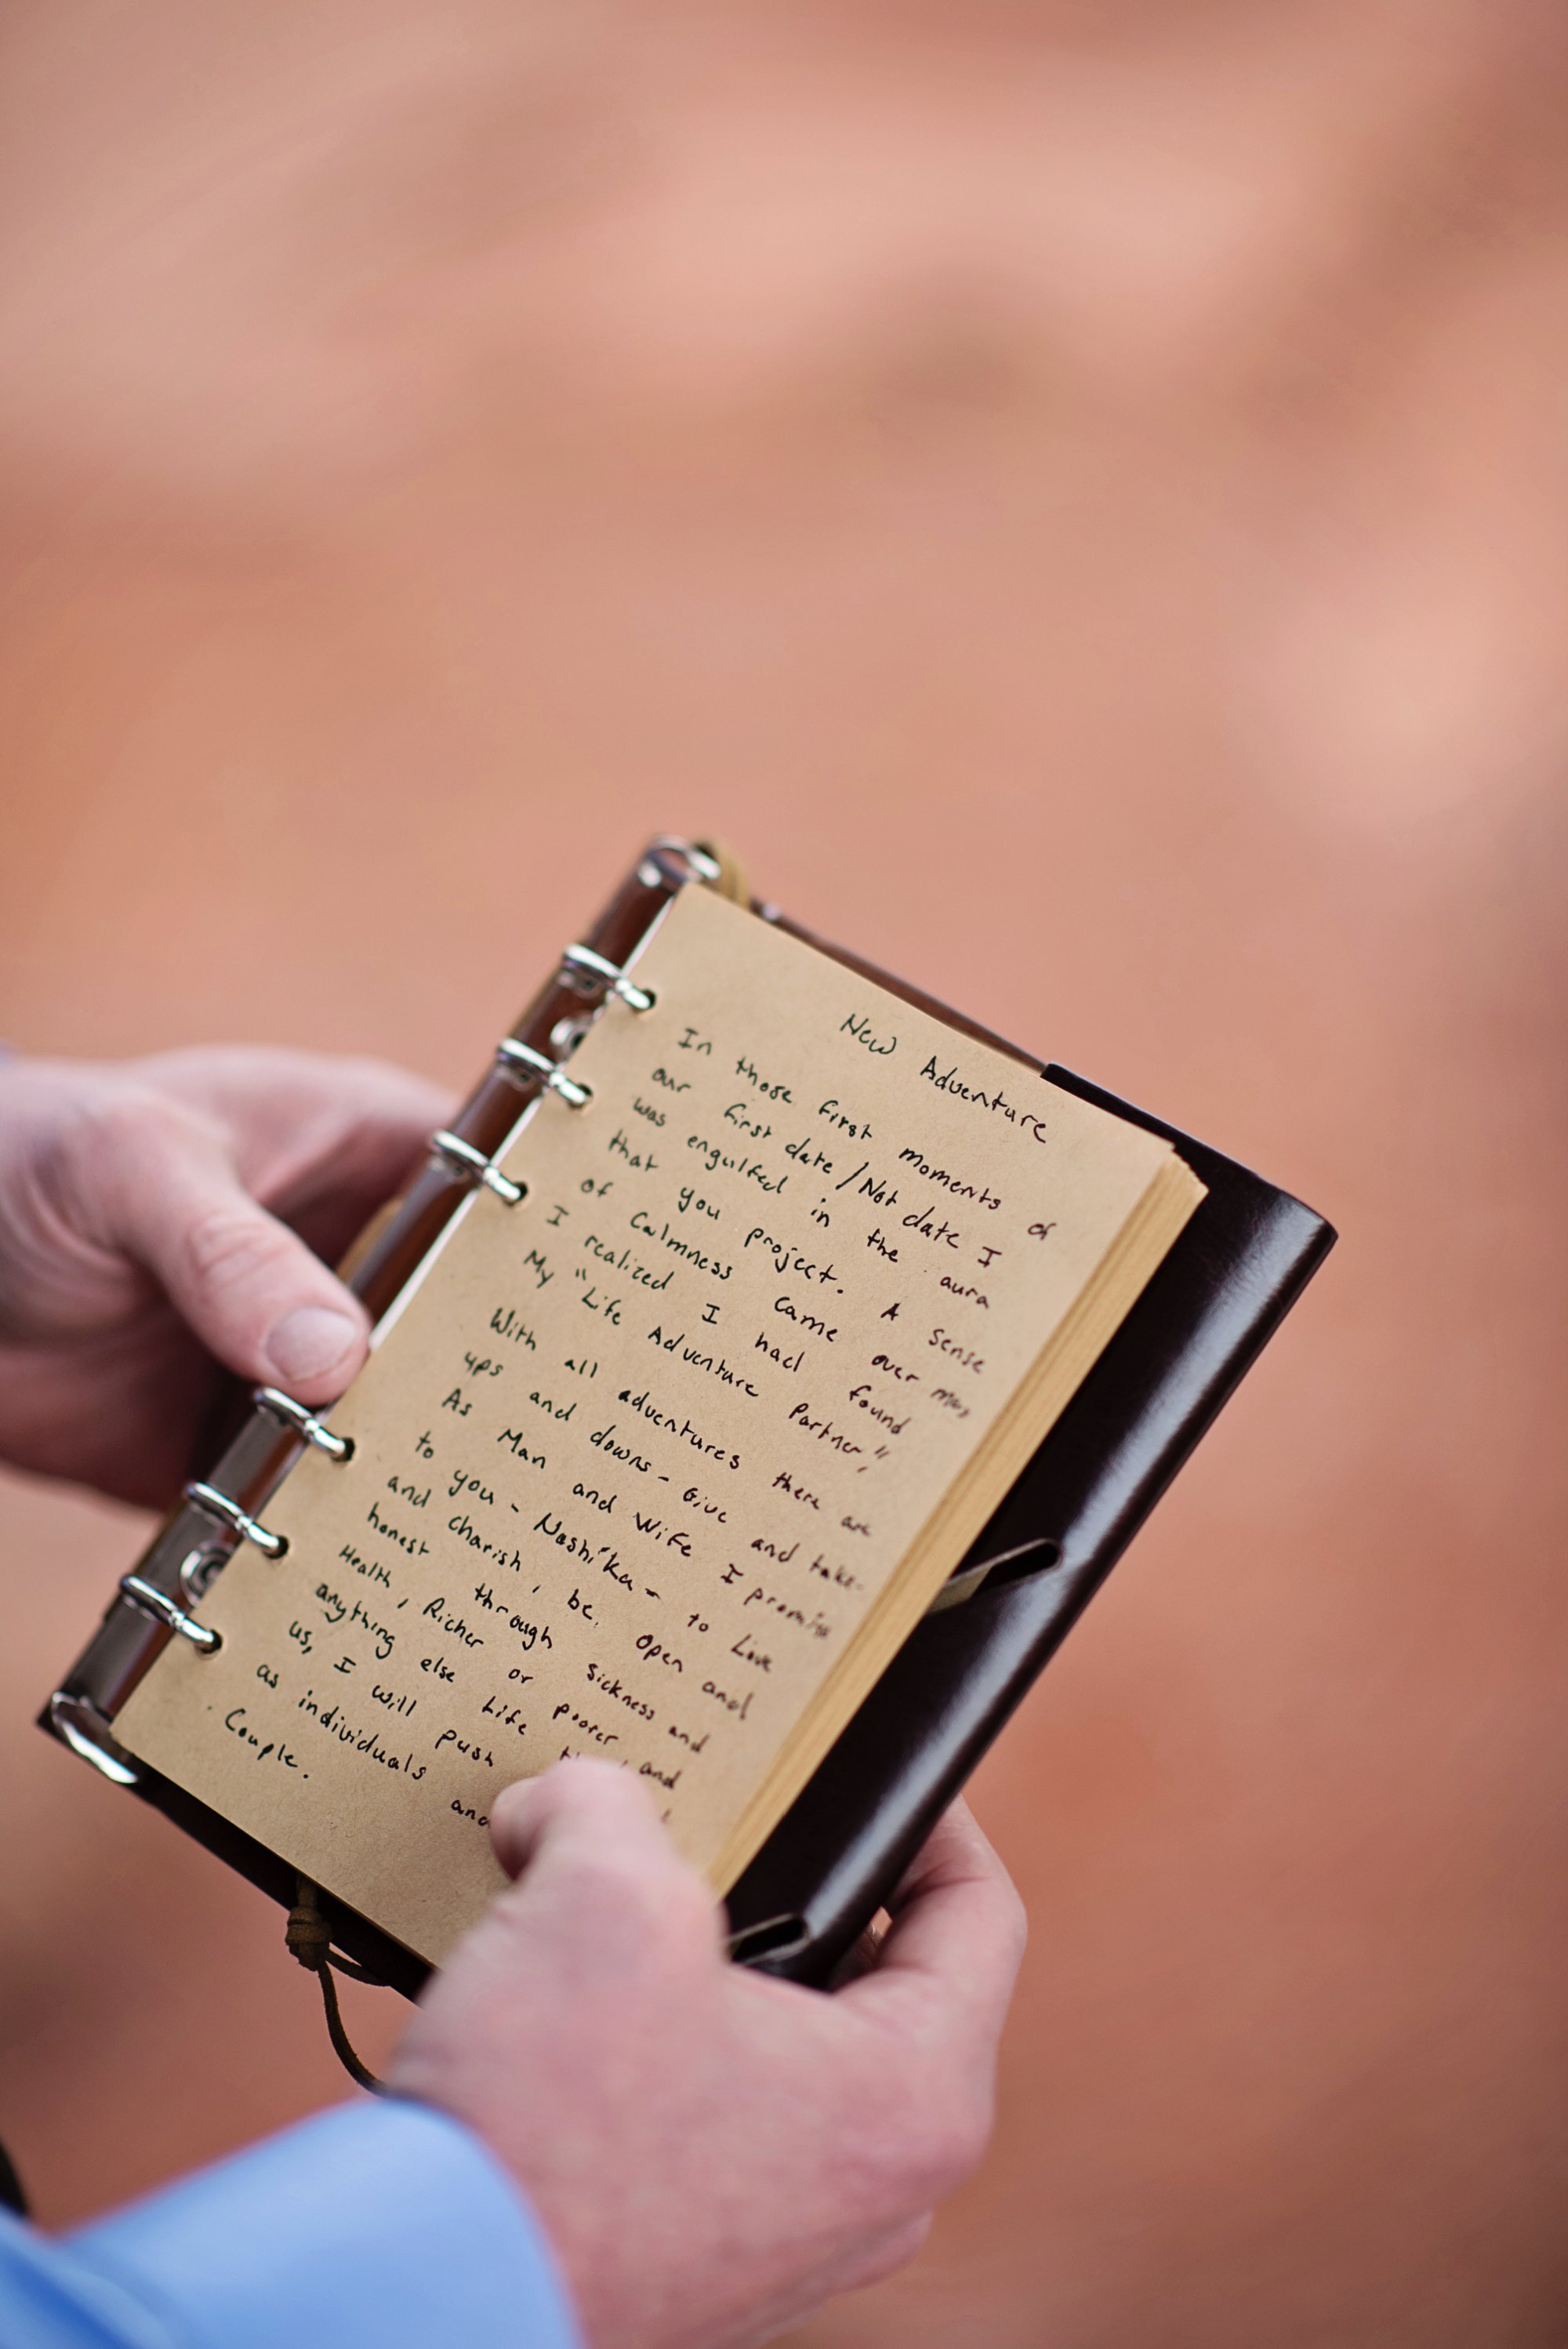 New Adventure
In those first moments of
our first date/Not date I
was engulfed in the aura
that you project. A sense
of Calmness came over me,
I realized I had found
My "Life Adventure Partner,"
With all adventures there are
ups and downs - Give and take.
As Man and Wife I promise
to you - Nashika - to Love
and charish, be open and
honest through Sickness and
Health, Richer or poorer, and
anything else Life
us, I will push
as individuals and
Couple.